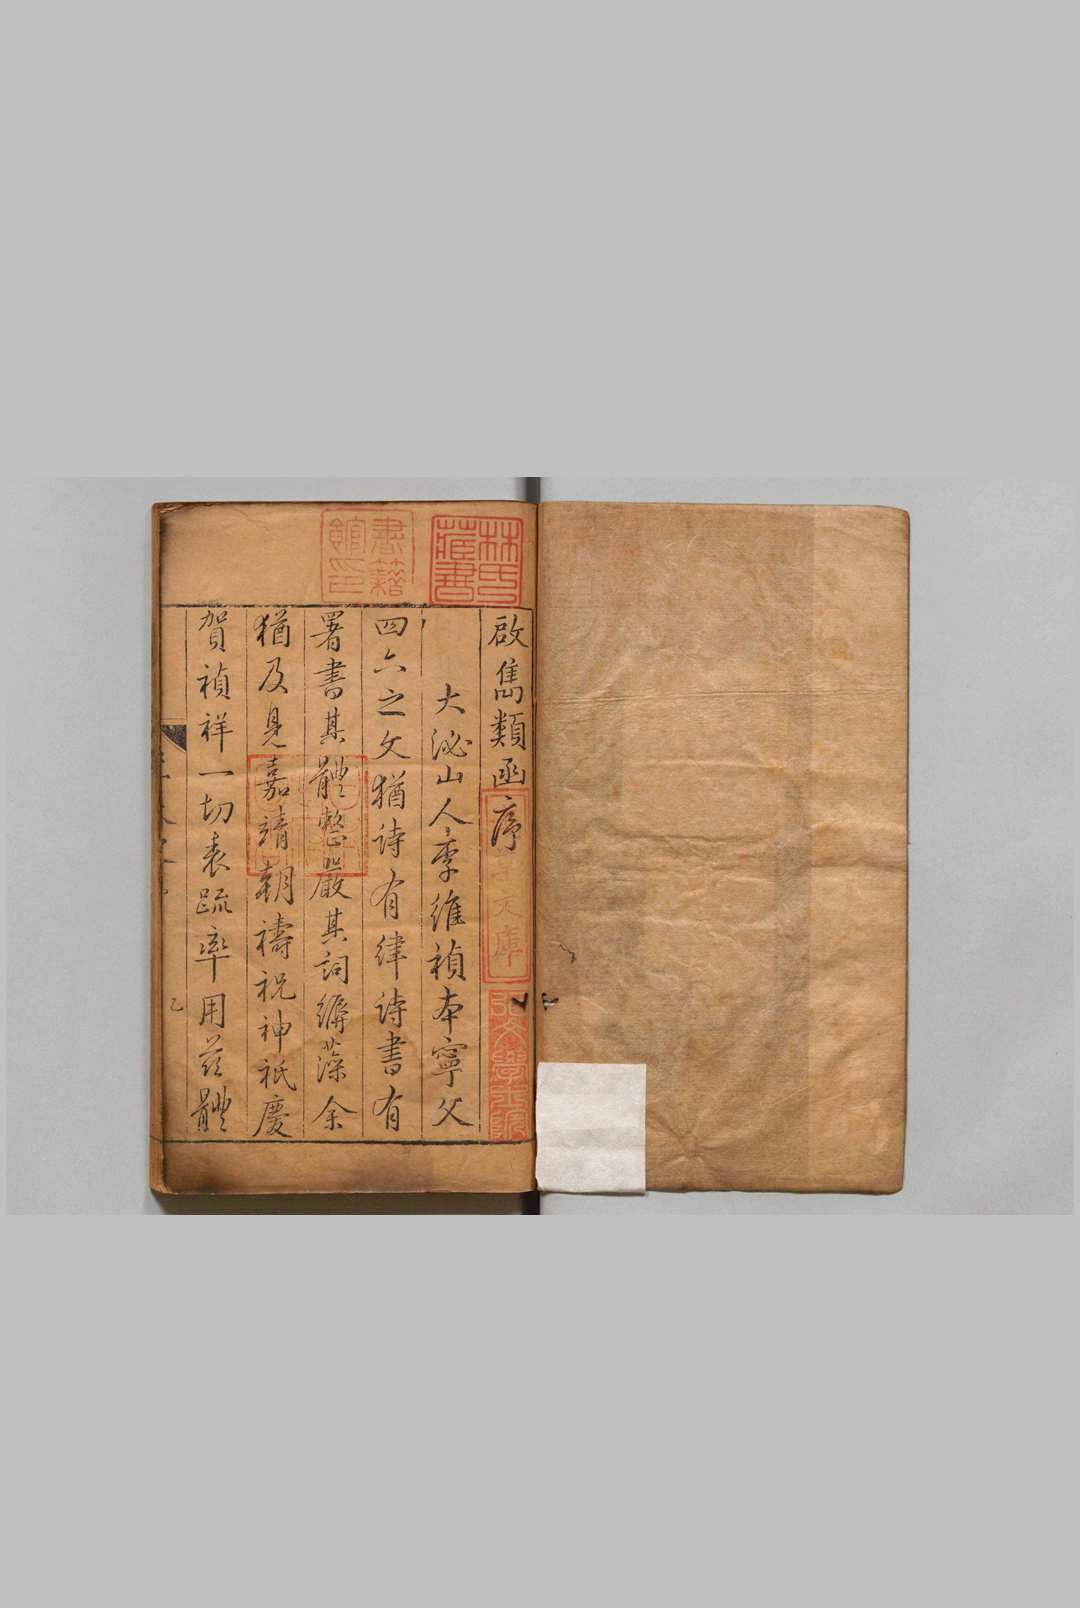 啟雋類函序
大泌山人李維禎本寧父
四六之文猶詩有律詩書有
署書其體整嚴其詞縟藻余
猶及見嘉靖朝禱祝神祇慶
賀禎祥一切表疏率用茲體
林氏藏書
書籍館印
文庫